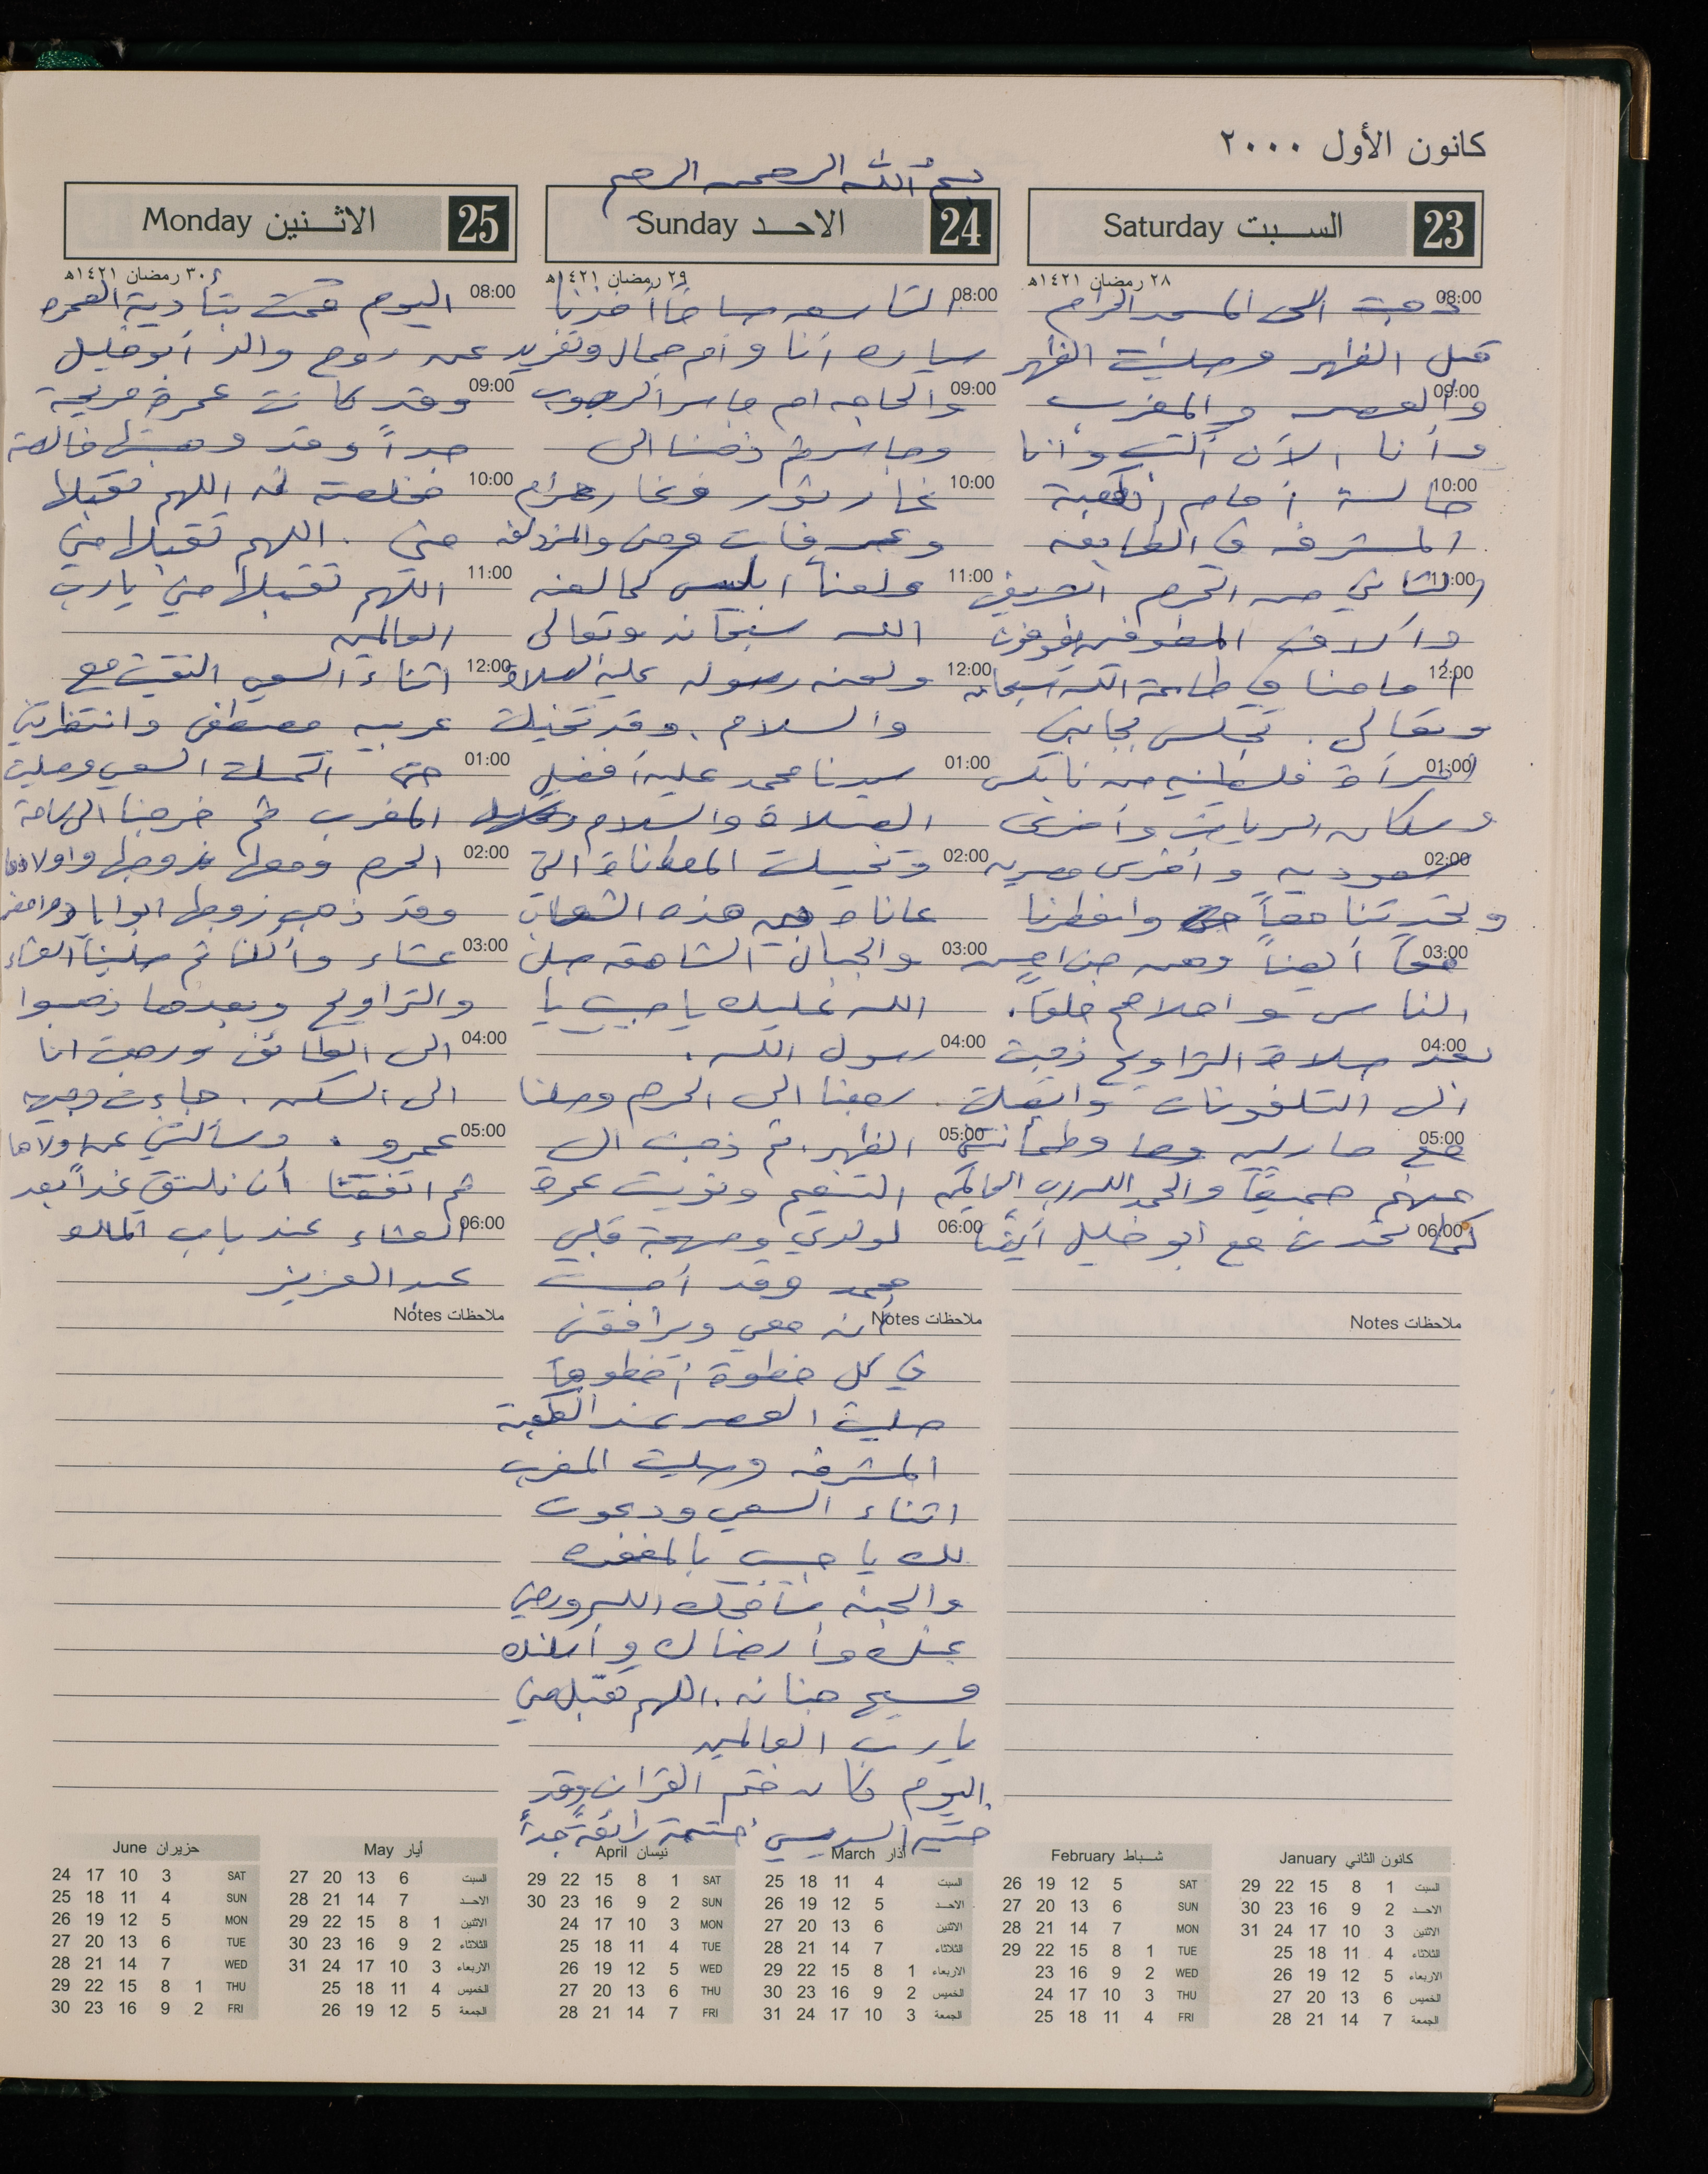 كانون الأول ٢٠٠٠
بسم الله الرحمن الرحيم
23 السبت Saturday
٢٨ رمضان ١٤٢١هـ
08:00
ذهبت الى المسجد الحرام
قبل الظهر وصليت الظهر
09:00
والعصر والمغرب
وأنا الآن أكتب وأنا
10:00
جالسة أمام الكعبة
المشرفه في الطابق
11:00
الثاني من الحرم الشريف
وآلاف المطوفين يطوفون
12:00
أمامنا في طاعة الله سبحانه
وتعالى. تجلس بجانبي
01:00
امرأة فلسطينيه من نابلس
وسكان الرياض وأخرى
02:00
سعوديه وأخرى مصريه
وتحدثنا معاً وافطرنا
03:00
معاً أيضاً وهن من احسن
الناس واحلاهم خلقاً.
04:00
بعد صلاة التراويح ذهبت
الى التلفونات واتصلت
05:00
مع مارلين وطمأنتني
عنهم جميعاً والحمد الله رب العالمين
06:00
كما تحدثت مع أبو خليل أيضاً
ملاحظات Notes
24 الاحد Sunday
٢٩ رمضان ١٤٢١هـ
08:00
التاسعه صباحاً أخذنا
سياره أنا وأم جمال وتغريد
09:00
والحاجه ام جاسر الرجوب
وجاسر ثم ذهبنا الى
10:00
غار ثور وغار حراء
وعرفات ومنى والمزدلفه
11:00
ولعنا ابليس كما لعنه
الله سبحانه وتعالى
12:00
ولعنه رسوله عليه الصلاة
والسلام. وقد تخيلت
01:00
سيدنا محمد عليه أفضل
الصلاة والسلام
02:00
وتخيلت المعاناة التي
عاناها من هذه الشعاب
03:00
والجبال الشاهقه صلى
الله عليك يا حبيبي يا
04:00
رسول الله.
رجعنا الى الحرم وصلنا
05:00
الظهر. ثم ذهبت الى
التنعيم ونويت عمرة
06:00
لولدي ومهجة قلبي
محمد وقد أحسست
ملاحظات Notes
أنه معي ويرافقني
في كل خطوة أخطوها
صليت العصر عند الكعبة
المشرفه وصليت المغرب
اثناء السعي ودعوت
لك يا حبيبي بالمغفره
والجنه سامحك الله ورضي
عنك وأرضاك وأسكنك
فسيح جنانه. اللهم تقبل مني
يا رب العالمين
اليوم كان ختم القرآن وقد
ختم السديس ختمة رائعة جداً
25 الاثنين Monday
٣٠ رمضان ١٤٢١هـ
08:00
اليوم قمت بتأدية العمره
عن روح والد أبو خليل
09:00
وقد كانت عمرة مريحة
جداً وقد وهبتها خالصة
10:00
مخلصة له اللهم تقبلها
مني. اللهم تقبلها مني
11:00
اللهم تقبلها مني يا رب
العالمين
12:00
اثناء السعي التقيت مع
عربيه مصطفى وانتظرتني
01:00
حتى اكملت السعي وصليت
المغرب ثم خرجنا الى ساحة
02:00
الحرم ومعها زوجها واولادها
وقد ذهب زوجها
03:00
عشاء وأكلنا ثم صلينا العشاء
والتراويح وبعدها ذهبوا
04:00
الى الطائف ورجعت انا
الى السكن. جاءت وجيهه
05:00
عمرو. وسألتني عن اولادها
ثم اتفقنا أن نلتقي غداً بعد
06:00
العشاء عند باب الملك
عبد العزيز
ملاحظات Notes
كانون الثاني January
السبت 1 8 15 22 29
الاحد 2 9 16 23 30
الاثنين 3 10 17 24 31
الثلاثاء 4 11 18 25
الاربعاء 5 12 19 26
الخميس 6 13 20 27
الجمعة 7 14 21 28
شباط February
SAT 5 12 19 26
SUN 6 13 20 27
MON 7 14 21 28
TUE 1 8 15 22 29
WED 2 9 16 23
THU 3 10 17 24
FRI 4 11 18 25
آذار March
السبت 4 11 18 25
الاحد 5 12 19 26
الاثنين 6 13 20 27
الثلاثاء 7 14 21 28
الاربعاء 1 8 15 22 29
الخميس 2 9 16 23 30
الجمعة 3 10 17 24 31
نيسان April
SAT 1 8 15 22 29
SUN 2 9 16 23 30
MON 3 10 17 24
TUE 4 11 18 25
WED 5 12 19 26
THU 6 13 20 27
FRI 7 14 21 28
أيار May
السبت 6 13 20 27
الاحد 7 14 21 28
الاثنين 1 8 15 22 29
الثلاثاء 2 9 16 23 30
الاربعاء 3 10 17 24 31
الخميس 4 11 18 25
الجمعة 5 12 19 26
حزيران June
SAT 3 10 17 24
SUN 4 11 18 25
MON 5 12 19 26
TUE 6 13 20 27
WED 7 14 21 28
THU 1 8 15 22 29
FRI 2 9 16 23 30